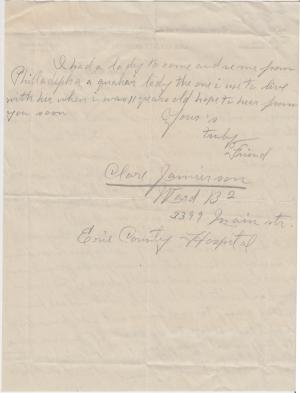 I had a lady to come and se me from
Philladepha a quaker lady the one i use to live
with her when i was 11 years old hope to hear from
you soon
Your's
truly
a Friend
Clara Jamierson
Ward B 2
3399 Main str.
Erie County Hospital